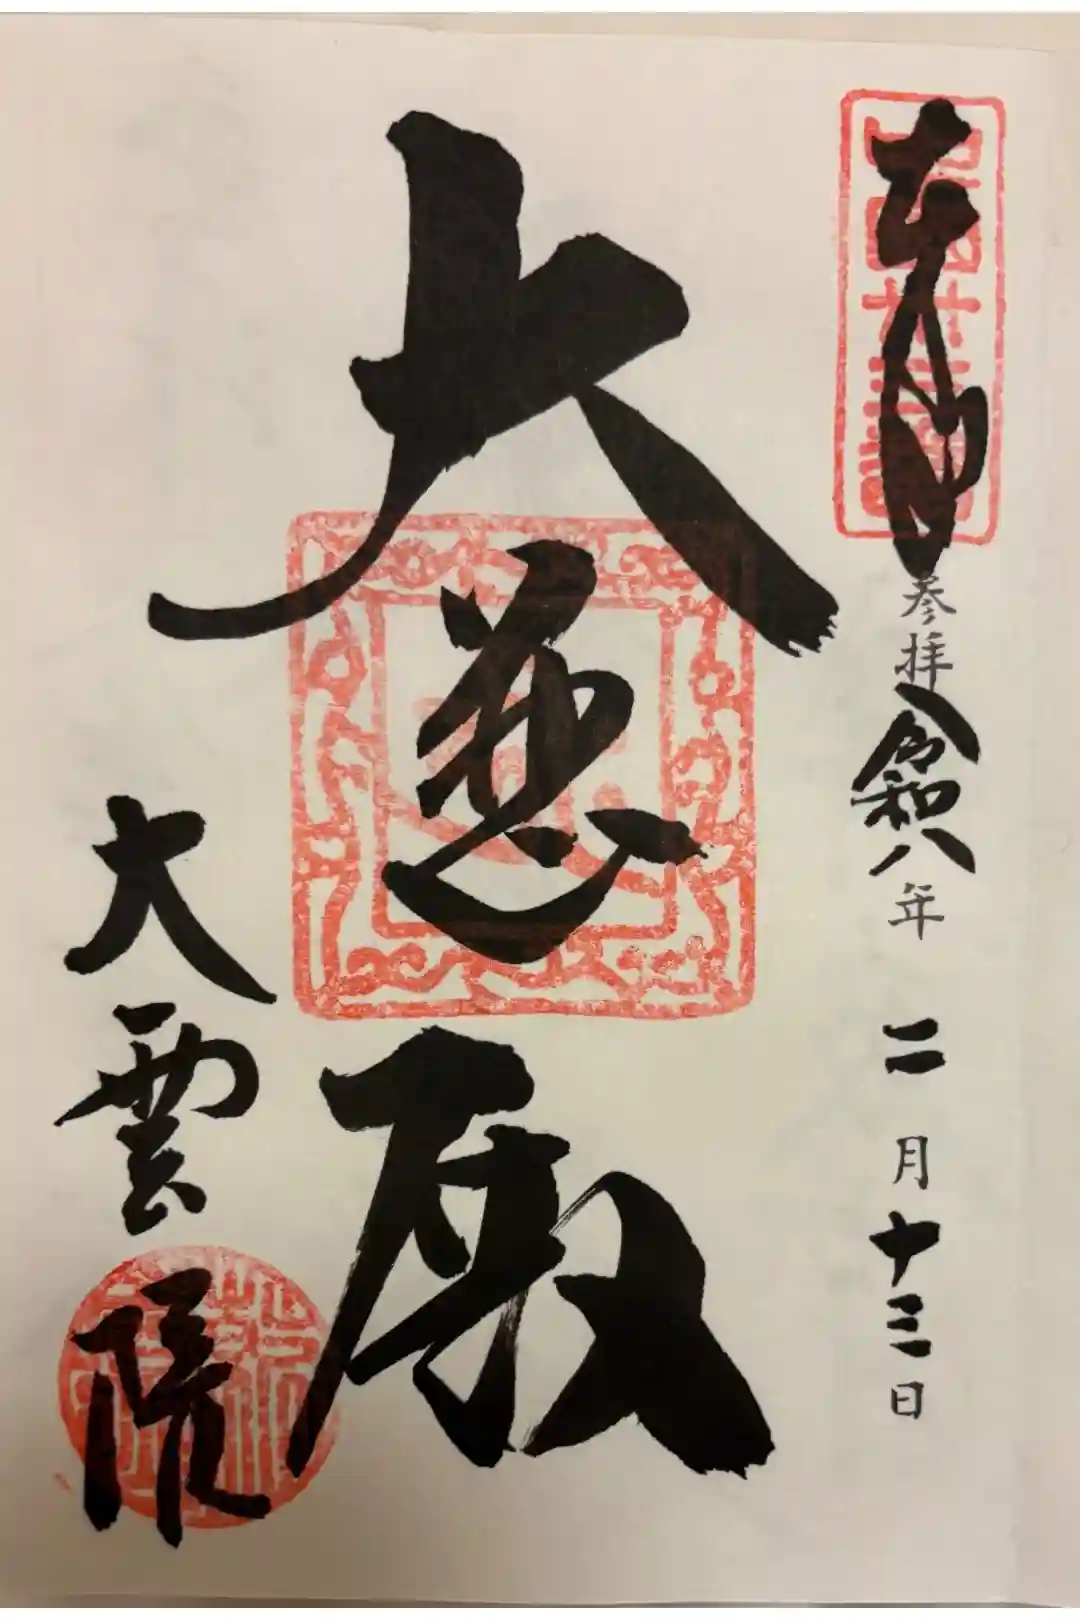 奉拝
参拝
令和八年
二月十三日
大悲殿
大雲院